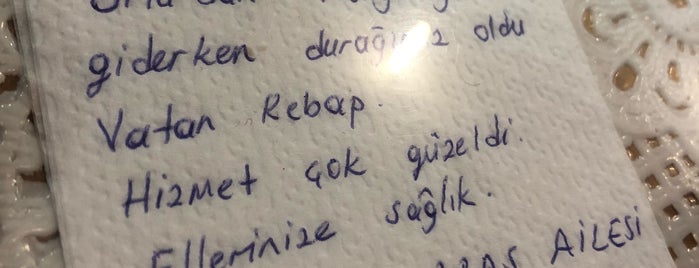 giderken durağımız oldu
Vatan Kebap.
Hizmet çok güzeldi.
Ellerinize sağlık.
AİLESİ